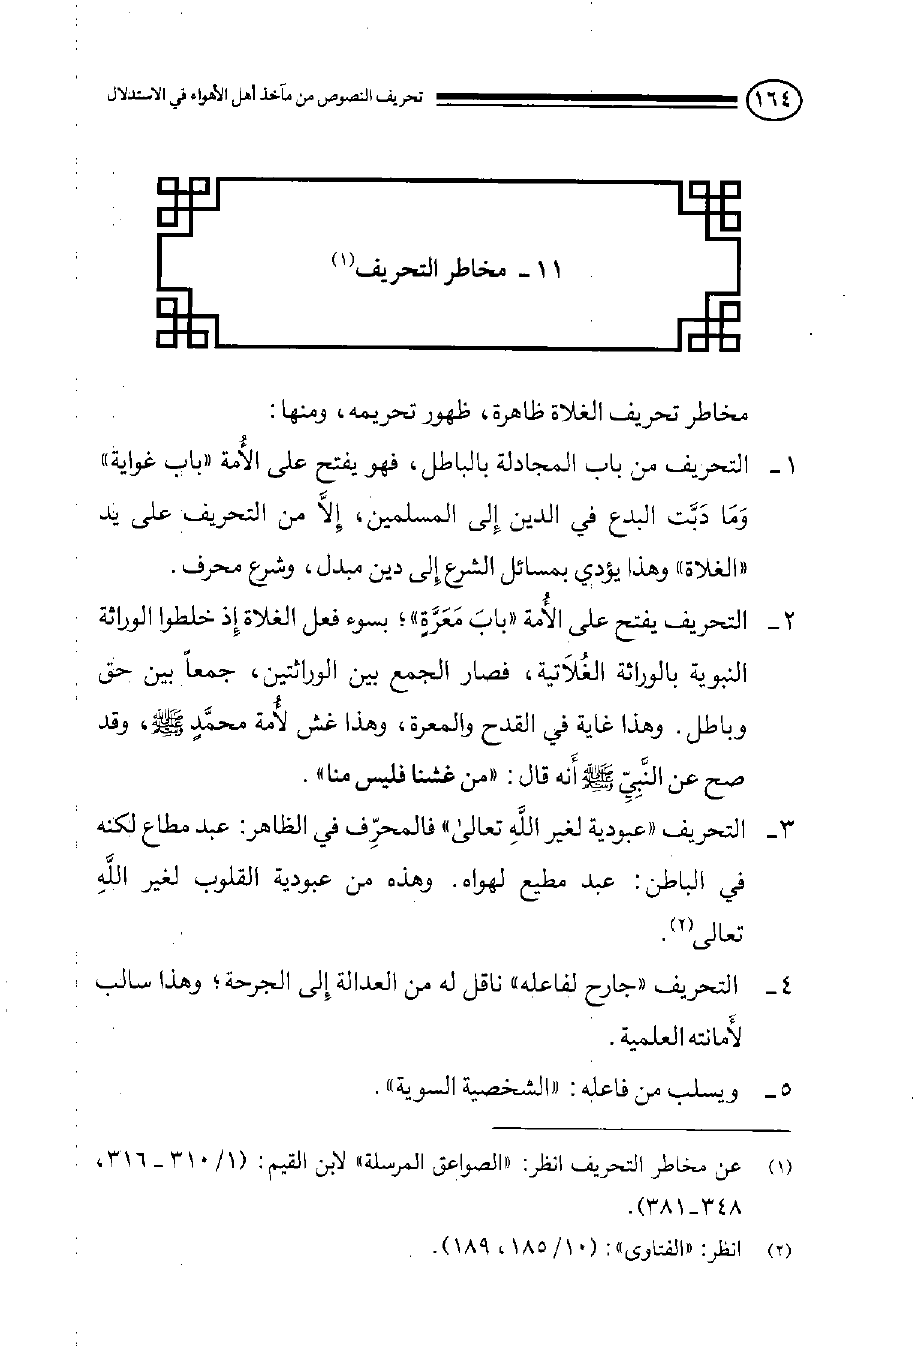 ١٦٤ تحريف النصوص من مآخذ أهل الأهواء في الاستدلال
١١ - مخاطر التحريف(١)
مخاطر تحريف الغلاة ظاهرة، ظهور تحريمه، ومنها:
١ - التحريف من باب المجادلة بالباطل، فهو يفتح على الأُمة «باب غواية»
وَمَا دَبَّت البدع في الدين إلى المسلمين، إلاَّ من التحريف على يد
«الغلاة» وهذا يؤدي بمسائل الشرع إلى دين مبدل، وشرع محرف.
٢ - التحريف يفتح على الأُمة «بابَ مَعَرَّةٍ»؛ بسوء فعل الغلاة إذ خلطوا الوراثة
النبوية بالوراثة الغُلاَتية، فصار الجمع بين الوراثتين، جمعاً بين حق
وباطل. وهذا غاية في القدح والمعرة، وهذا غش لأُمة محمَّدٍ ﷺ، وقد
صح عن النَّبِيّ ﷺ أَنه قال: «من غشنا فليس منا».
٣ - التحريف «عبودية لغير اللَّهِ تعالىٰ» فالمحرِّف في الظاهر: عبد مطاع لكنه
في الباطن: عبد مطيع لهواه. وهذه من عبودية القلوب لغير اللَّهِ
تعالى(٢).
٤ - التحريف «جارح لفاعله» ناقل له من العدالة إلى الجرحة؛ وهذا سالب
لأَمانته العلمية.
٥ - ويسلب من فاعله: «الشخصية السوية».
(١) عن مخاطر التحريف انظر: «الصواعق المرسلة» لابن القيم: (١/ ٣١٠ - ٣١٦،
٣٤٨-٣٨١).
(٢) انظر: «الفتاوى»: (١٠/ ١٨٥، ١٨٩).